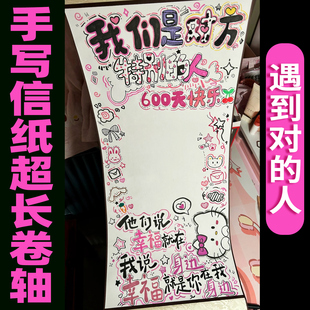 手写信纸超长卷轴
遇到对的人
我们是对方
特别的人
600天快乐
他们说
幸福就在身边
我说
幸福就是你在我身边